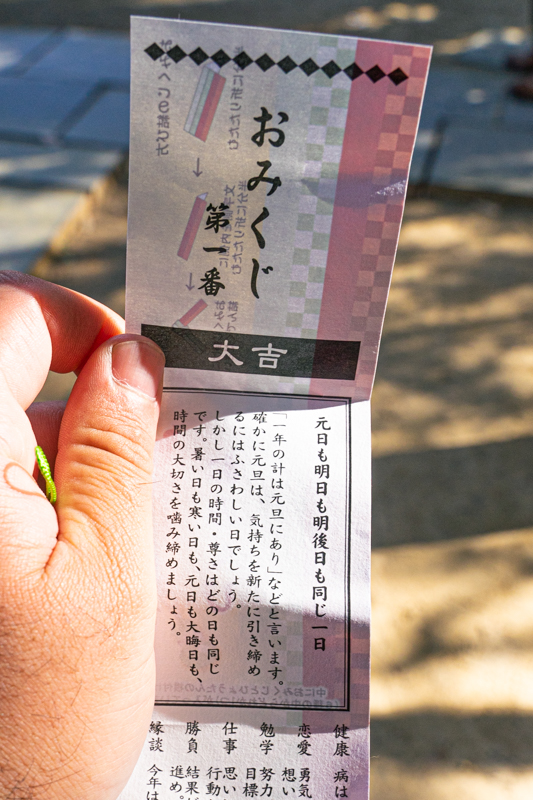 おみくじ
第一番
大吉
元日も明日も明後日も同じ一日
「一年の計は元旦にあり」などと言います。
確かに元旦は、気持ちを新たに引き締め
るにはふさわしい日でしょう。
しかし一日の時間・尊さはどの日も同じ
です。暑い日も寒い日も、元日も大晦日も、
時間の大切さを噛み締めましょう。
健康 病は
恋愛 勇気
想い
勉学 努力
目標
仕事 思い
行動
勝負 結果
進め。
縁談 今年は